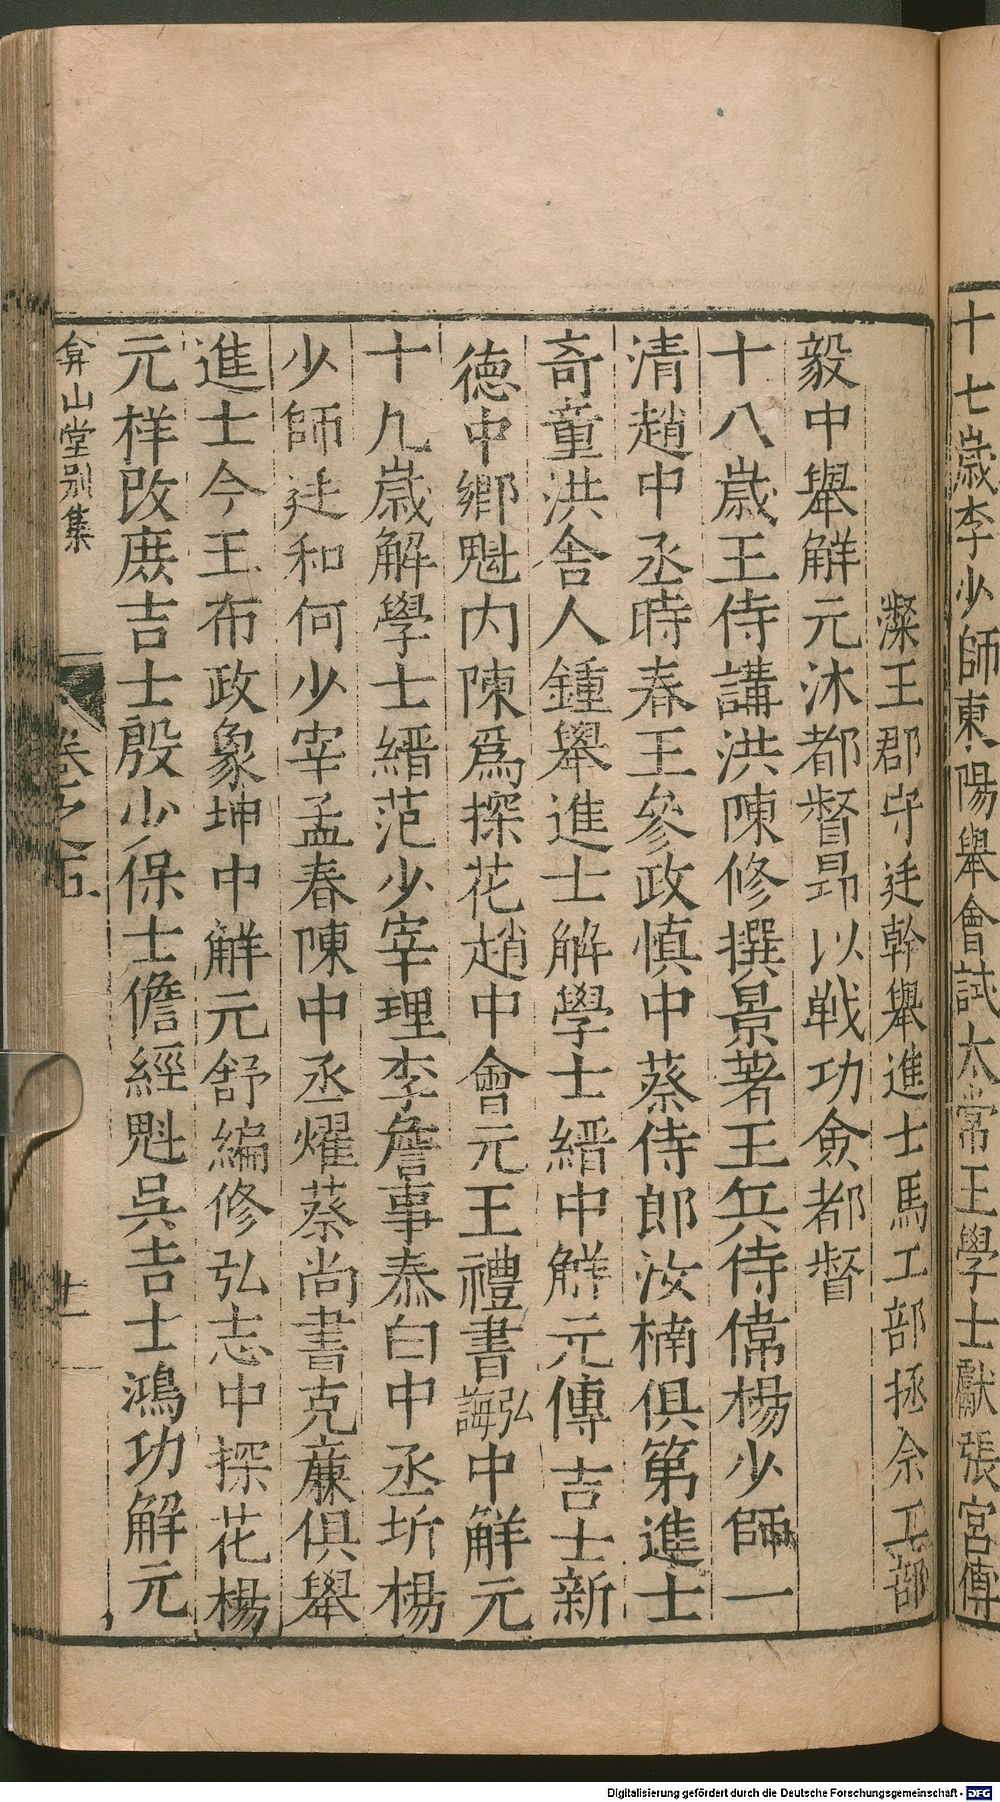 十七歲李少師東陽舉會試太常王學士獻張宮傅
濙王郡守廷幹舉進士馬工部拯佘工部
毅中舉解元沐都督昂以戰功僉都督
十八歲王侍講洪陳修撰景著王兵侍偉楊少師一
清趙中丞時春王參政慎中蔡侍郎汝楠俱第進士
奇童洪舍人鍾舉進士解學士縉中解元傅吉士新
德中鄉魁內陳爲探花趙中會元王禮書弘誨中解元
十九歲解學士縉范少宰理李詹事泰白中丞圻楊
少師廷和何少宰孟春陳中丞燿蔡尚書克廉俱舉
進士今王布政象坤中解元舒編修弘志中探花楊
元祥改庶吉士殷少保士儋經魁吳吉士鴻功解元
弇山堂別集
卷之五
十一
Digitalisierung gefördert durch die Deutsche Forschungsgemeinschaft - DFG